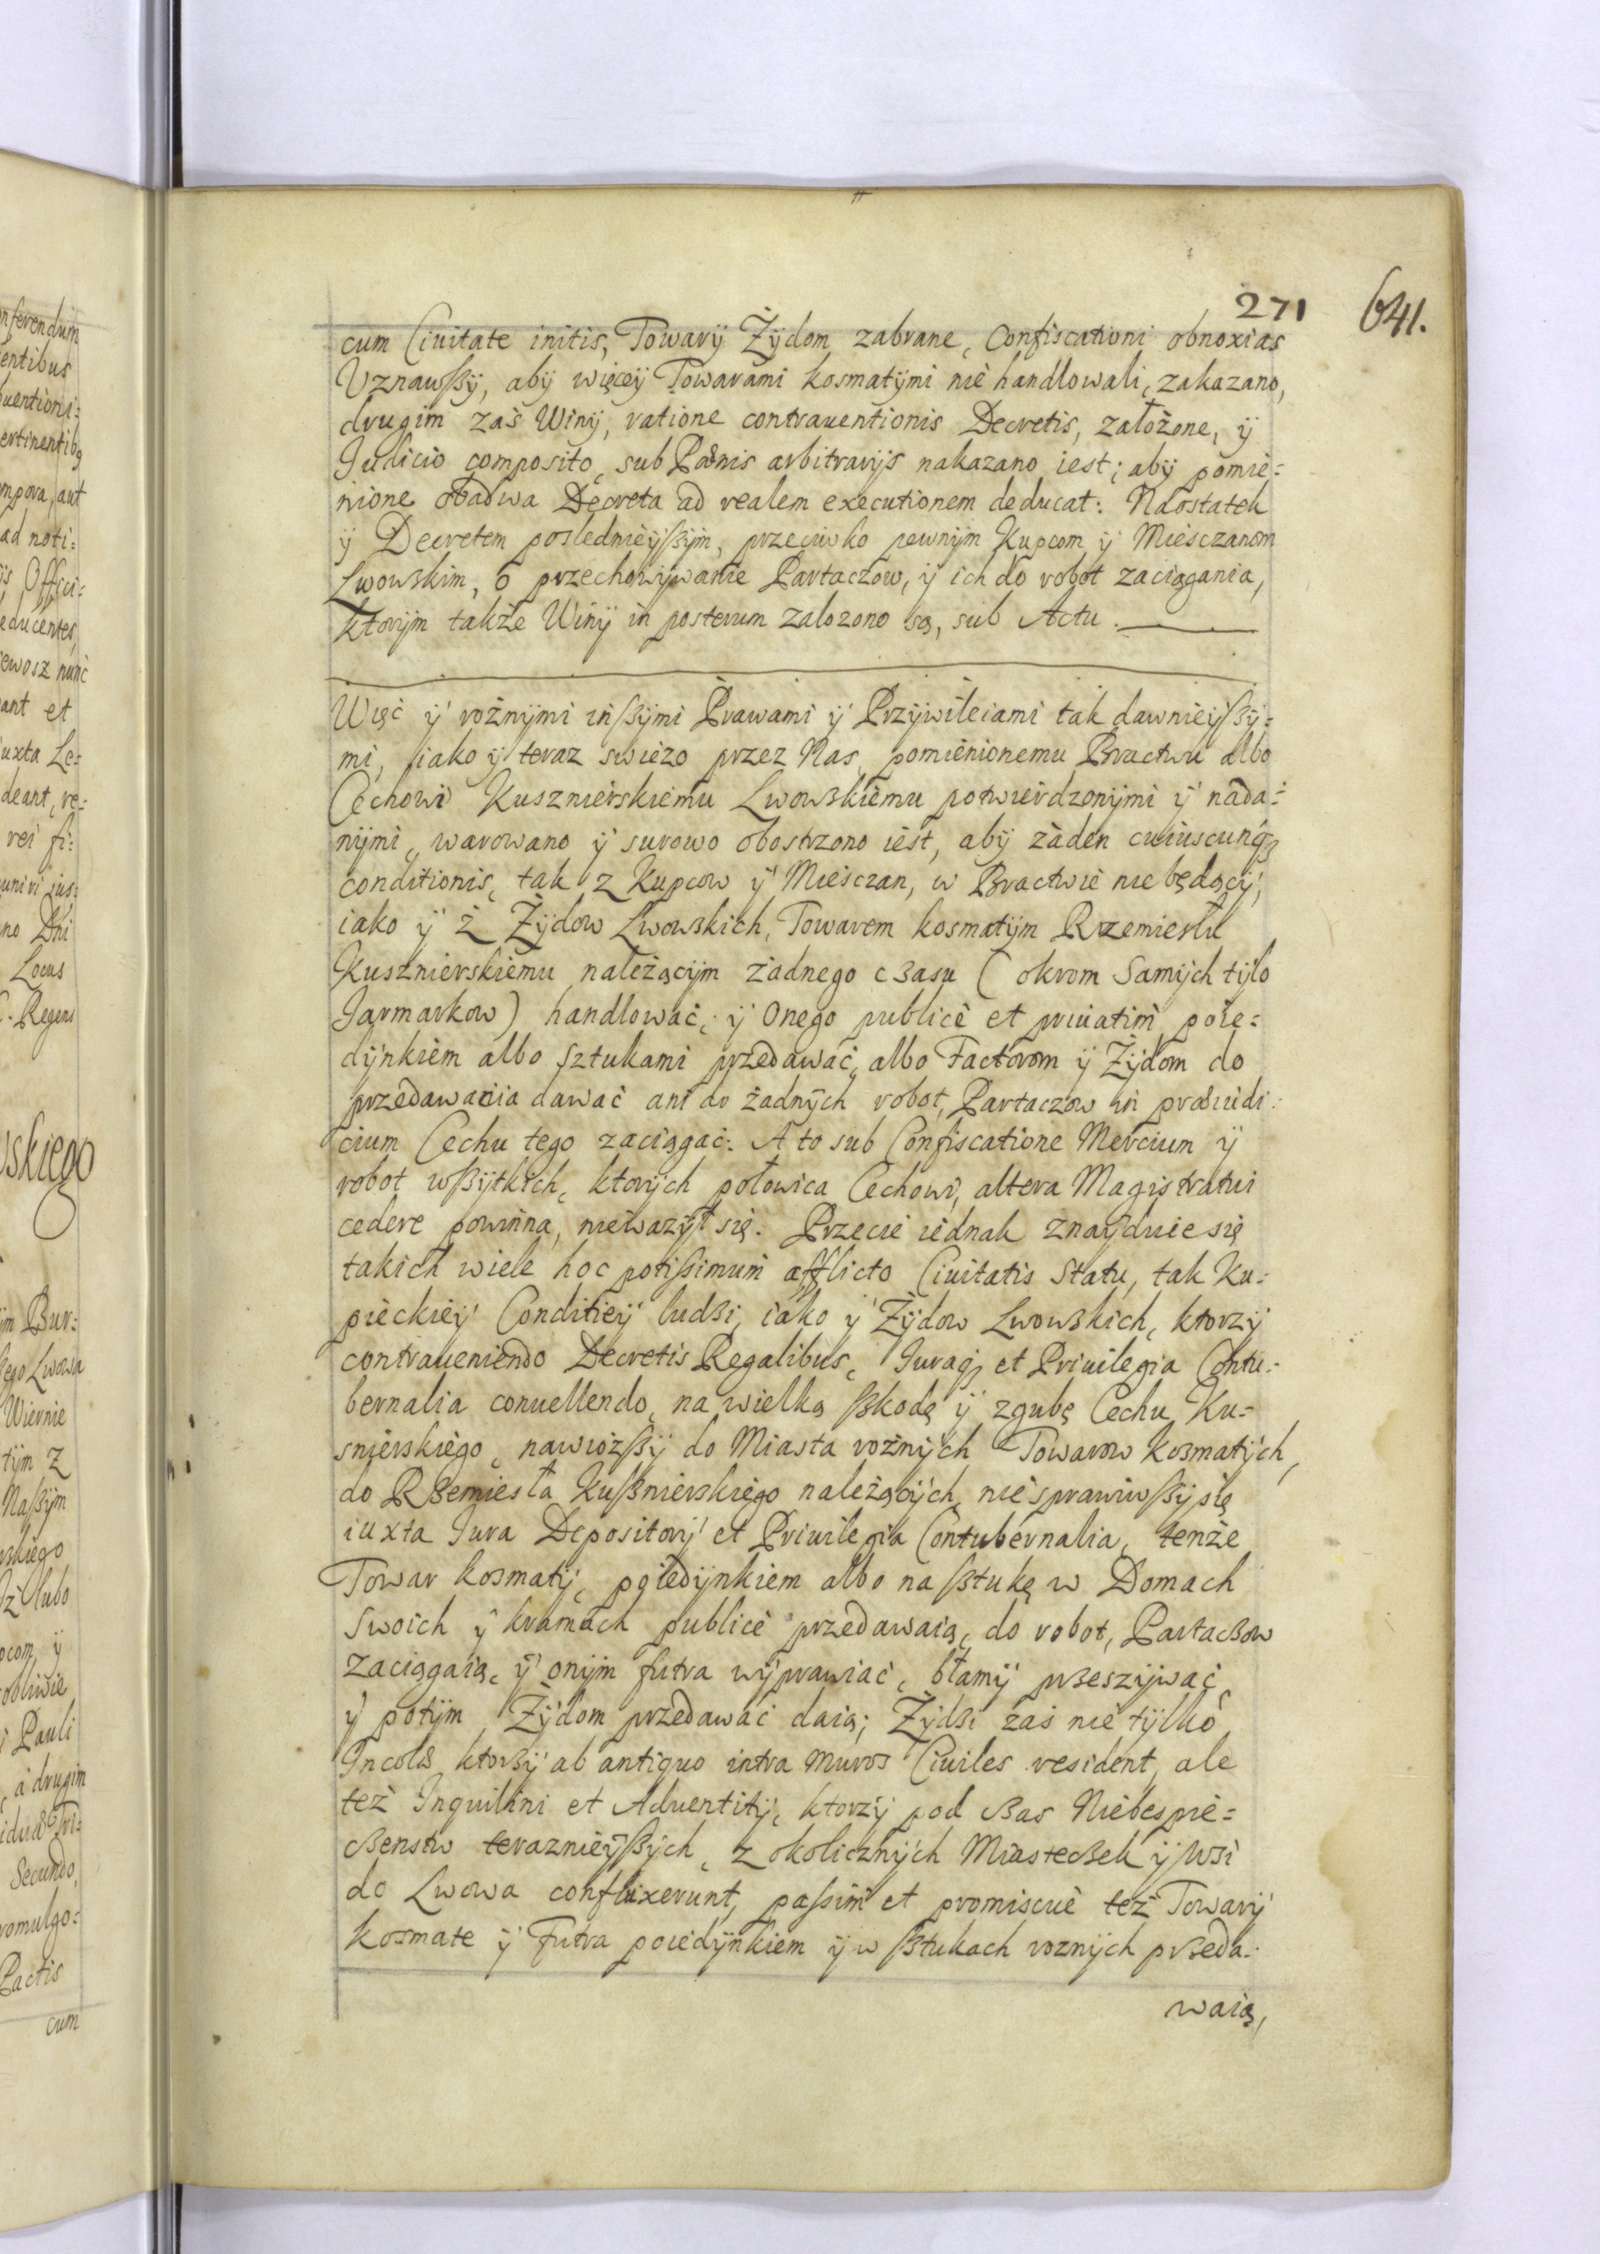 271
641.
cum Ciuitate initis, Towary Żydom zabrane, Confiscationi obnoxias
Vznawßy, aby więcey Towarami kosmatymi nie handlowali, zakazano,
drugim zaś Winy, ratione contrauentionis Decretis, założone, y
Iudicio composito, sub Pœnis arbitrarijs nakazano iest; aby pomie=
nione obadwa Decreta ad realem executionem deducat: Naostatek
y Decretem poslednieyßym, przeciwko pewnym Kupcom y Miesczanom
Lwowskim, o przechowywanie Partaczow, y ich do robot zaciągania,
ktorym także Winy in posterum zalozono są, sub Actu.
Więc y rożnymi inßymi Prawami y Przywileiami tak dawnieyßy=
mi, iako y teraz swiezo przez Nas, pomienionemu Bractwu albo
Cechowi Kusznierskiemu Lwowskiemu potwierdzonymi y nada=
nymi, warowano y surowo obostrzono iest, aby żaden cuiuscunq̨
conditionis, tak z Kupcow y Miesczan, w Bractwie nie będący,
iako y z Żydow Lwowskich, Towarem kosmatym Rzemiesłu
Kusznierskiemu należącym żadnego czasu (okrom Samych tylo
Iarmarkow) handlować, y Onego publicè et priuatim poie=
dynkiem albo sztukami przedawać, albo Factorom y Żydom do
przedawania dawać ani do żadnych robot, Partaczow in præiudi=
cium Cechu tego zaciągać: A to sub Confiscatione Mercium y
robot wßytkich, ktorych połowica Cechowi, altera Magistratui
cedere powinna, nieważył się. Przecie iednak znayduie się
takich wiele hoc potißimum afflicto Ciuitatis Statu, tak Ku=
pieckiey Conditiey ludzi, iako y Żydow Lwowskich, ktorzy
contraueniendo Decretis Regalibus, Iuraq̨ et Priuilegia Contu=
bernalia conuellendo, na wielką ßkodę y zgubę Cechu Ku=
snierskiego, nawiozßy do Miasta rożnych Towarow Kosmatych,
do Rzemiesła Kußnierskiego należących, nie sprawiwßy się
iuxta Iura Depositorij et Priuilegia Contubernalia, tenże
Towar kosmaty, poiedynkiem albo na ßtukę w Domach
swoich y kramach publicè przedawaią, do robot, Partaczow
zaciągaią, y onym futra wyprawiać, błamy przeszywać,
y potym Żydom przedawać daią; Żydzi zaś nie tylko
Incolæ ktorzy ab antiquo intra muros Ciuiles resident, ale
też Inquilini et Aduentitij, ktorzy pod czas Niebespie=
czenstw terazniejßych, z okolicznych Miasteczek y Wsi
do Lwowa confluxerunt, paßim et promiscuè też Towary
kosmate y Futra poiedynkiem y w ßtukach roznych przeda=
waią,